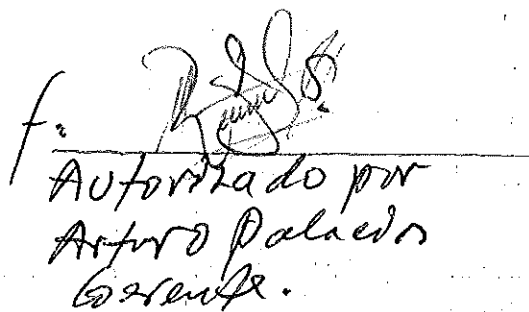 f.
Autorizado por
Arturo Palacios
Gerente.